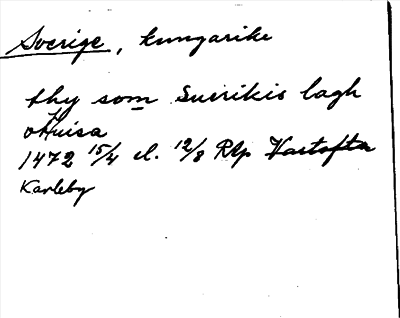 Sverige, kungarike
thy som Suerikis lagh
vtuisa
1472 15/4 el. 12/8 Rlp Vartofta
Karleby